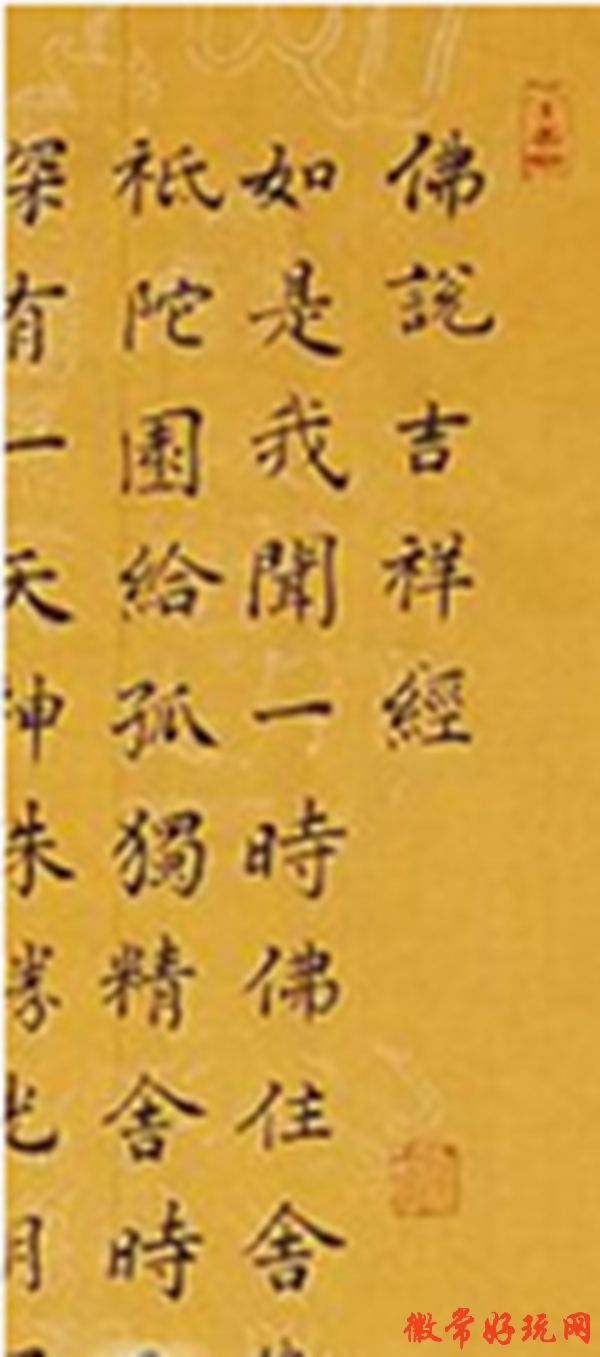 佛說吉祥經
如是我聞一時佛住舍
祇陀園給孤獨精舍時
深有一天神殊勝光明
徽常好玩网